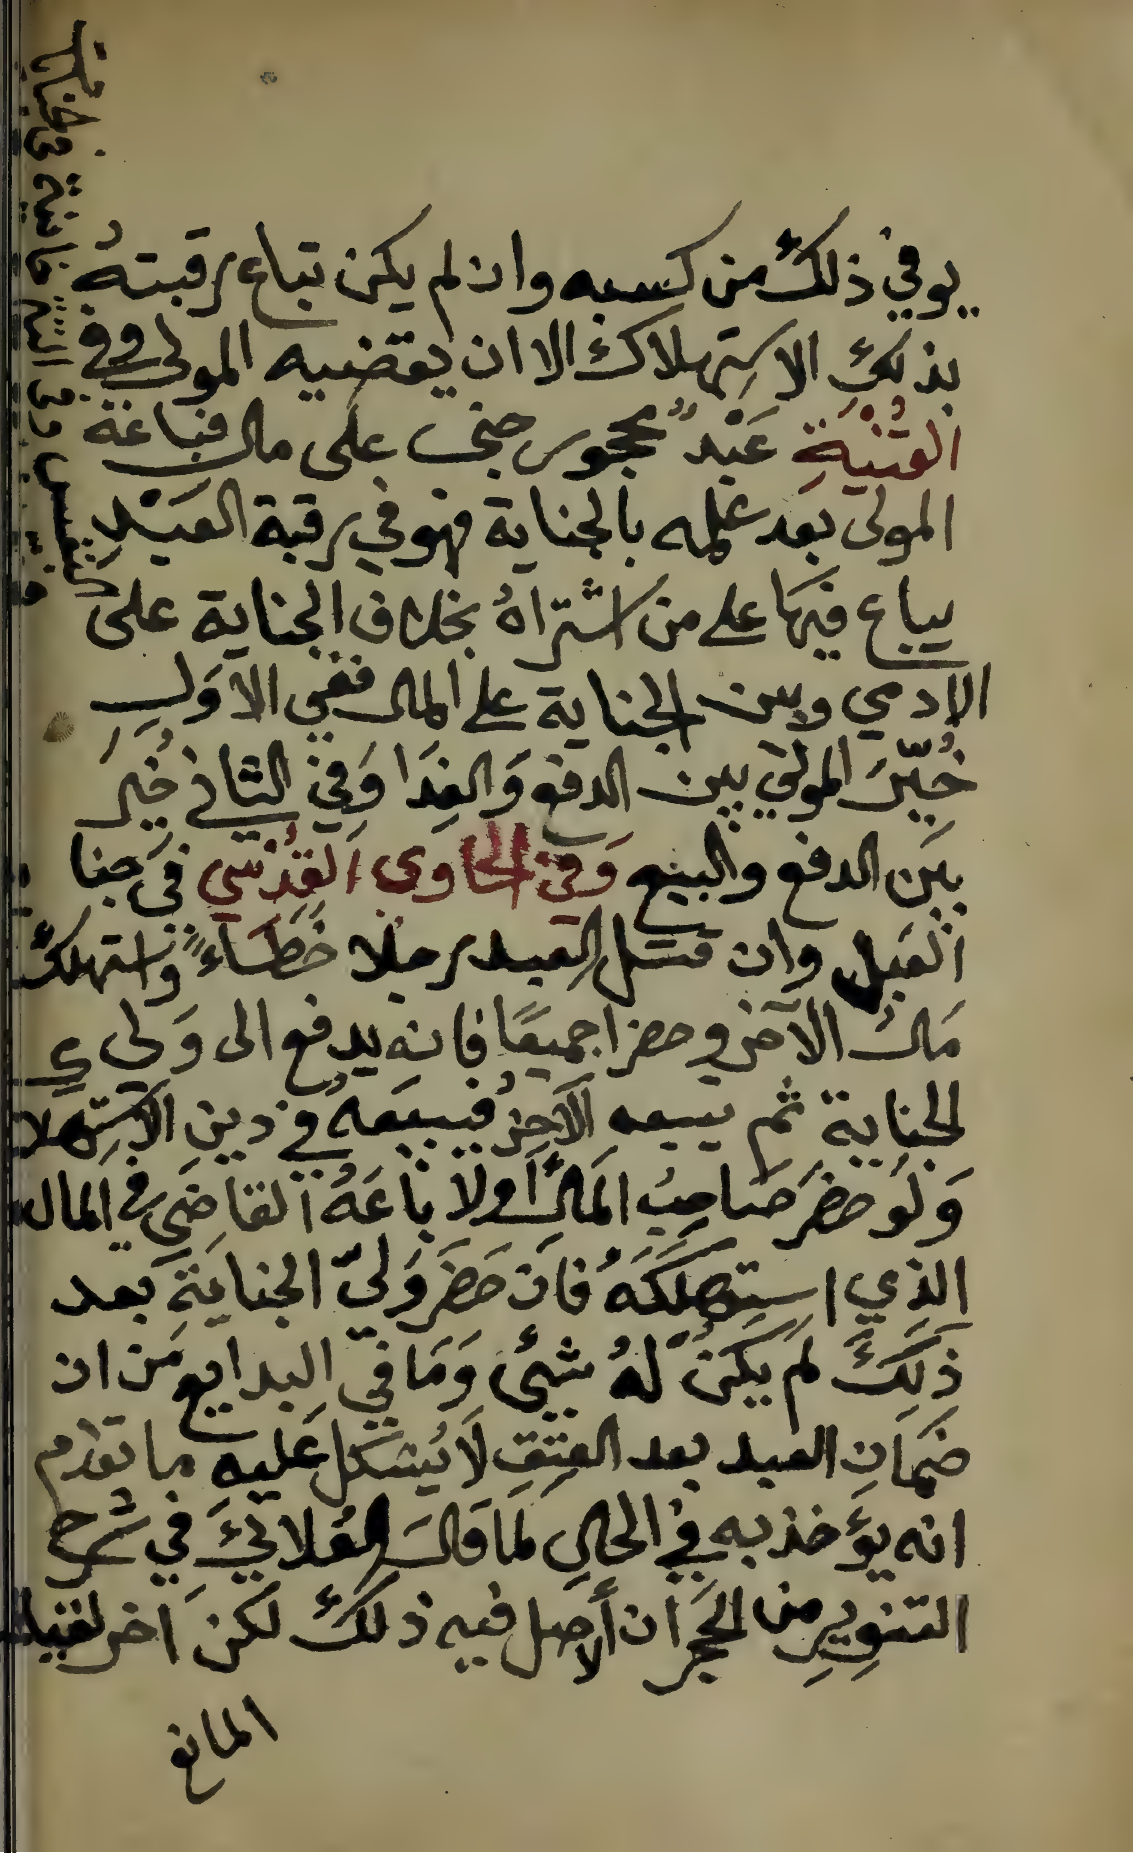 يوفي ذلك من كسبه وان لم يكن تباع رقبتهُ
بذلك الاستهلاك الا ان يقضيه المولى وفي
القُنْيَةِ عَبْدٌ محجور جنى على مال فباعَهُ
المولى بعد علمه بالجناية فهو في رقبة العَبْدِ
يباع فيها على من اشتراهُ بخلاف الجناية على
الادمي وبين الجناية على المال ففي الاوَل
خُيّرَ المولى بين الدفع وَالفِدَا وَفي الثاني خُيرَ
بين الدفع والبيع وَفي الحاوى القُدْسي في جنا
العَبد وان قتل العبد رجلا خَطَاءً واستهلك
مَال الآخر وحضرا جميعًا فانه يدفع الى وَلى
الجناية ثم يبيعه الآخرُ فيبيعهُ في دين الاستهلا
وَلَو حضرَ صَاحبُ المَال أولا بَاعَهُ القاضَى في المال
الذي استهلكَهُ فانَ حَضَرَ وَليّ الجنايَةِ بعد
ذَلكَ لم يكنْ لهُ شيئ وَمَا في البدايع من ان
ضَمَان العبد بعد العِتقِ لَا يُشكل عَليه ما تقدم
انه يؤخذ به في الحال لما قالَ العَلائيُ في شرح
التنوير من الحَجر ان الأصل فيه ذلك لكن اخر لقيام
المانع